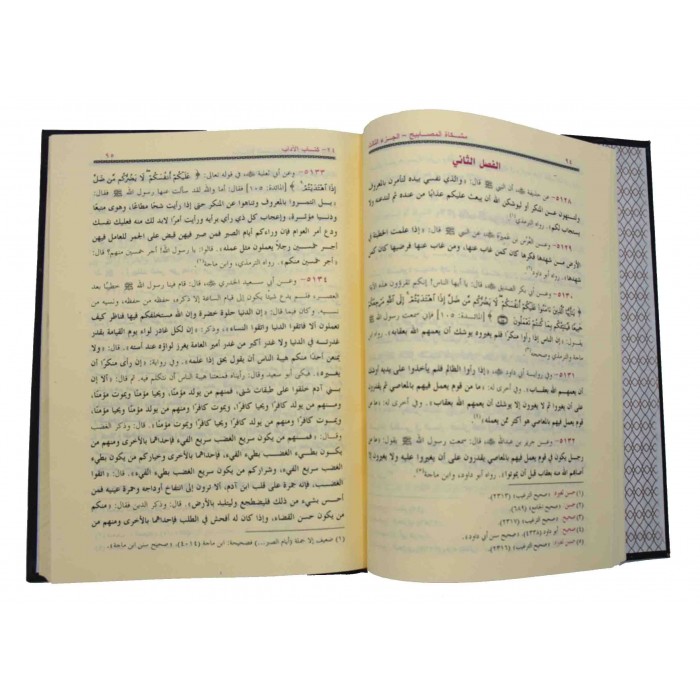 ٦٤
مشكاة المصابيح - الجزء الثالث
الفصل الثاني
٥١٢٨- عن حذيفة، أن النبي ﷺ قال: «والذي نفسي بيده لتأمرن بالمعروف
ولتنهون عن المنكر أو ليوشكن الله أن يبعث عليكم عذابًا من عنده ثم لتدعنه ولا
يستجاب لكم». رواه الترمذي.
٥١٢٩- وعن العرس بن عميرة، عن النبي ﷺ قال: «إذا عملت الخطيئة في
الأرض من شهدها فكرهها كان كمن غاب عنها، ومن غاب عنها فرضيها كان كمن
شهدها». رواه أبو داود
٥١٣٠- وعن أبي بكر الصديق، قال: يا أيها الناس! إنكم تقرؤون هذه
﴿يا أيها الذين آمنوا عليكم أنفسكم لا يضركم من ضل إذا اهتديتم إلى الله مرجعكم
جميعًا فينبئكم بما كنتم تعملون﴾ [المائدة: ١٠٥] فإني سمعت رسول الله ﷺ يقول:
«إن الناس إذا رأوا منكرًا فلم يغيروه يوشك أن يعمهم الله بعقابه». رواه ابن ماجة
والترمذي وصححه
٥١٣١- وفي رواية أبي داود: «إذا رأوا الظالم فلم يأخذوا على يديه
أوشك أن يعمهم الله بعقاب». وفي أخرى له: «ما من قوم يعمل فيهم بالمعاصي ثم يقدرون
على أن يغيروا ثم لا يغيرون إلا يوشك أن يعمهم الله بعقاب». وفي أخرى له: «ما من قوم يعمل فيهم بالمعاصي هم أكثر
ممن يعمله»
٥١٣٢- وعن جرير بن عبدالله، قال: سمعت رسول الله ﷺ يقول: «ما من
رجل يكون في قوم يعمل فيهم بالمعاصي يقدرون على أن يغيروا عليه ولا يغيرون إلا
أصابهم الله منه بعقاب قبل أن يموتوا». رواه أبو داود، وابن ماجة
(١) حسن لغيره (صحيح الترغيب» (٢٣١٣)
(٢) حسن «صحيح الجامع» (٦٨٩)
(٣) صحيح «صحيح الترغيب» (٢٣١٦)
(٤) صحيح أبو داود (٤٣٣٨) «صحيح سنن أبي داود»
(٥) حسن لغيره «صحيح الترغيب» (٢٣١٦)
٢٤- كتاب الآداب
٦٥
٥١٣٣- وعن أبي ثعلبة، في قوله تعالى: ﴿عليكم أنفسكم لا يضركم من ضل
إذا اهتديتم﴾ [المائدة: ١٠٥] فقال: أما والله لقد سألت عنها رسول الله ﷺ فقال:
«بل ائتمروا بالمعروف وتناهوا عن المنكر حتى إذا رأيت شحًا مطاعًا، وهوى متبعًا
ودنيا مؤثرة، وإعجاب كل ذي رأي برأيه ورأيت أمرًا لا بد لك منه فعليك نفسك
ودع أمر العوام فإن وراءكم أيام الصبر فمن صبر فيهن قبض على الجمر للعامل فيهن
أجر خمسين رجلًا يعملون مثل عمله». قالوا: يا رسول الله! أجر خمسين منهم؟ قال:
«أجر خمسين منكم». رواه الترمذي، وابن ماجة(١)
٥١٣٤- وعن أبي سعيد الخدري، قال: قام فينا رسول الله ﷺ خطيبًا بعد
العصر، فلم يدع شيئًا يكون إلى قيام الساعة إلا ذكره، حفظه من حفظه، ونسيه من
نسيه، وكان فيما قال: «إن الدنيا حلوة خضرة وإن الله مستخلفكم فيها فناظر كيف
تعملون ألا فاتقوا الدنيا واتقوا النساء»، وذكر: «إن لكل غادر لواء يوم القيامة بقدر
غدرته في الدنيا ولا غدر أكبر من غدر أمير العامة يغرز لواؤه عند استه». قال: «ولا
يمنعن أحدًا منكم هيبة الناس أن يقول بحق إذا علمه». وفي رواية: «إن رأى منكرًا أن
يغيره». فبكى أبو سعيد وقال: رأيناه فمنعتنا هيبة الناس أن نتكلم فيه. ثم قال: «ألا إن
بني آدم خلقوا على طبقات شتى، فمنهم من يولد مؤمنًا ويحيا مؤمنًا ويموت مؤمنًا،
ومنهم من يولد كافرًا ويحيا كافرًا ويموت كافرًا، ومنهم من يولد مؤمنًا ويحيا مؤمنًا
ويموت كافرًا، ومنهم من يولد كافرًا ويحيا كافرًا ويموت مؤمنًا». قال: وذكر الغضب
وقال: «فمنهم من يكون سريع الغضب سريع الفيء فإحداهما بالأخرى ومنهم من
يكون بطيء الغضب بطيء الفيء فإحداهما بالأخرى وخياركم من يكون بطيء
الغضب سريع الفيء، وشراركم من يكون سريع الغضب بطيء الفيء». قال: «اتقوا
الغضب؛ فإنه جمرة على قلب ابن آدم، ألا ترون إلى انتفاخ أوداجه وحمرة عينيه فمن
أحس بشيء من ذلك فليضطجع وليتلبد بالأرض». قال: وذكر الدين فقال: «منكم
من يكون حسن القضاء، وإذا كان له أفحش في الطلب فإحداهما بالأخرى ومنهم
(١) ضعيف إلا جملة (أيام الصبر...) فصحيحة: ابن ماجة (٤٠١٤)، «صحيح سنن ابن ماجة».